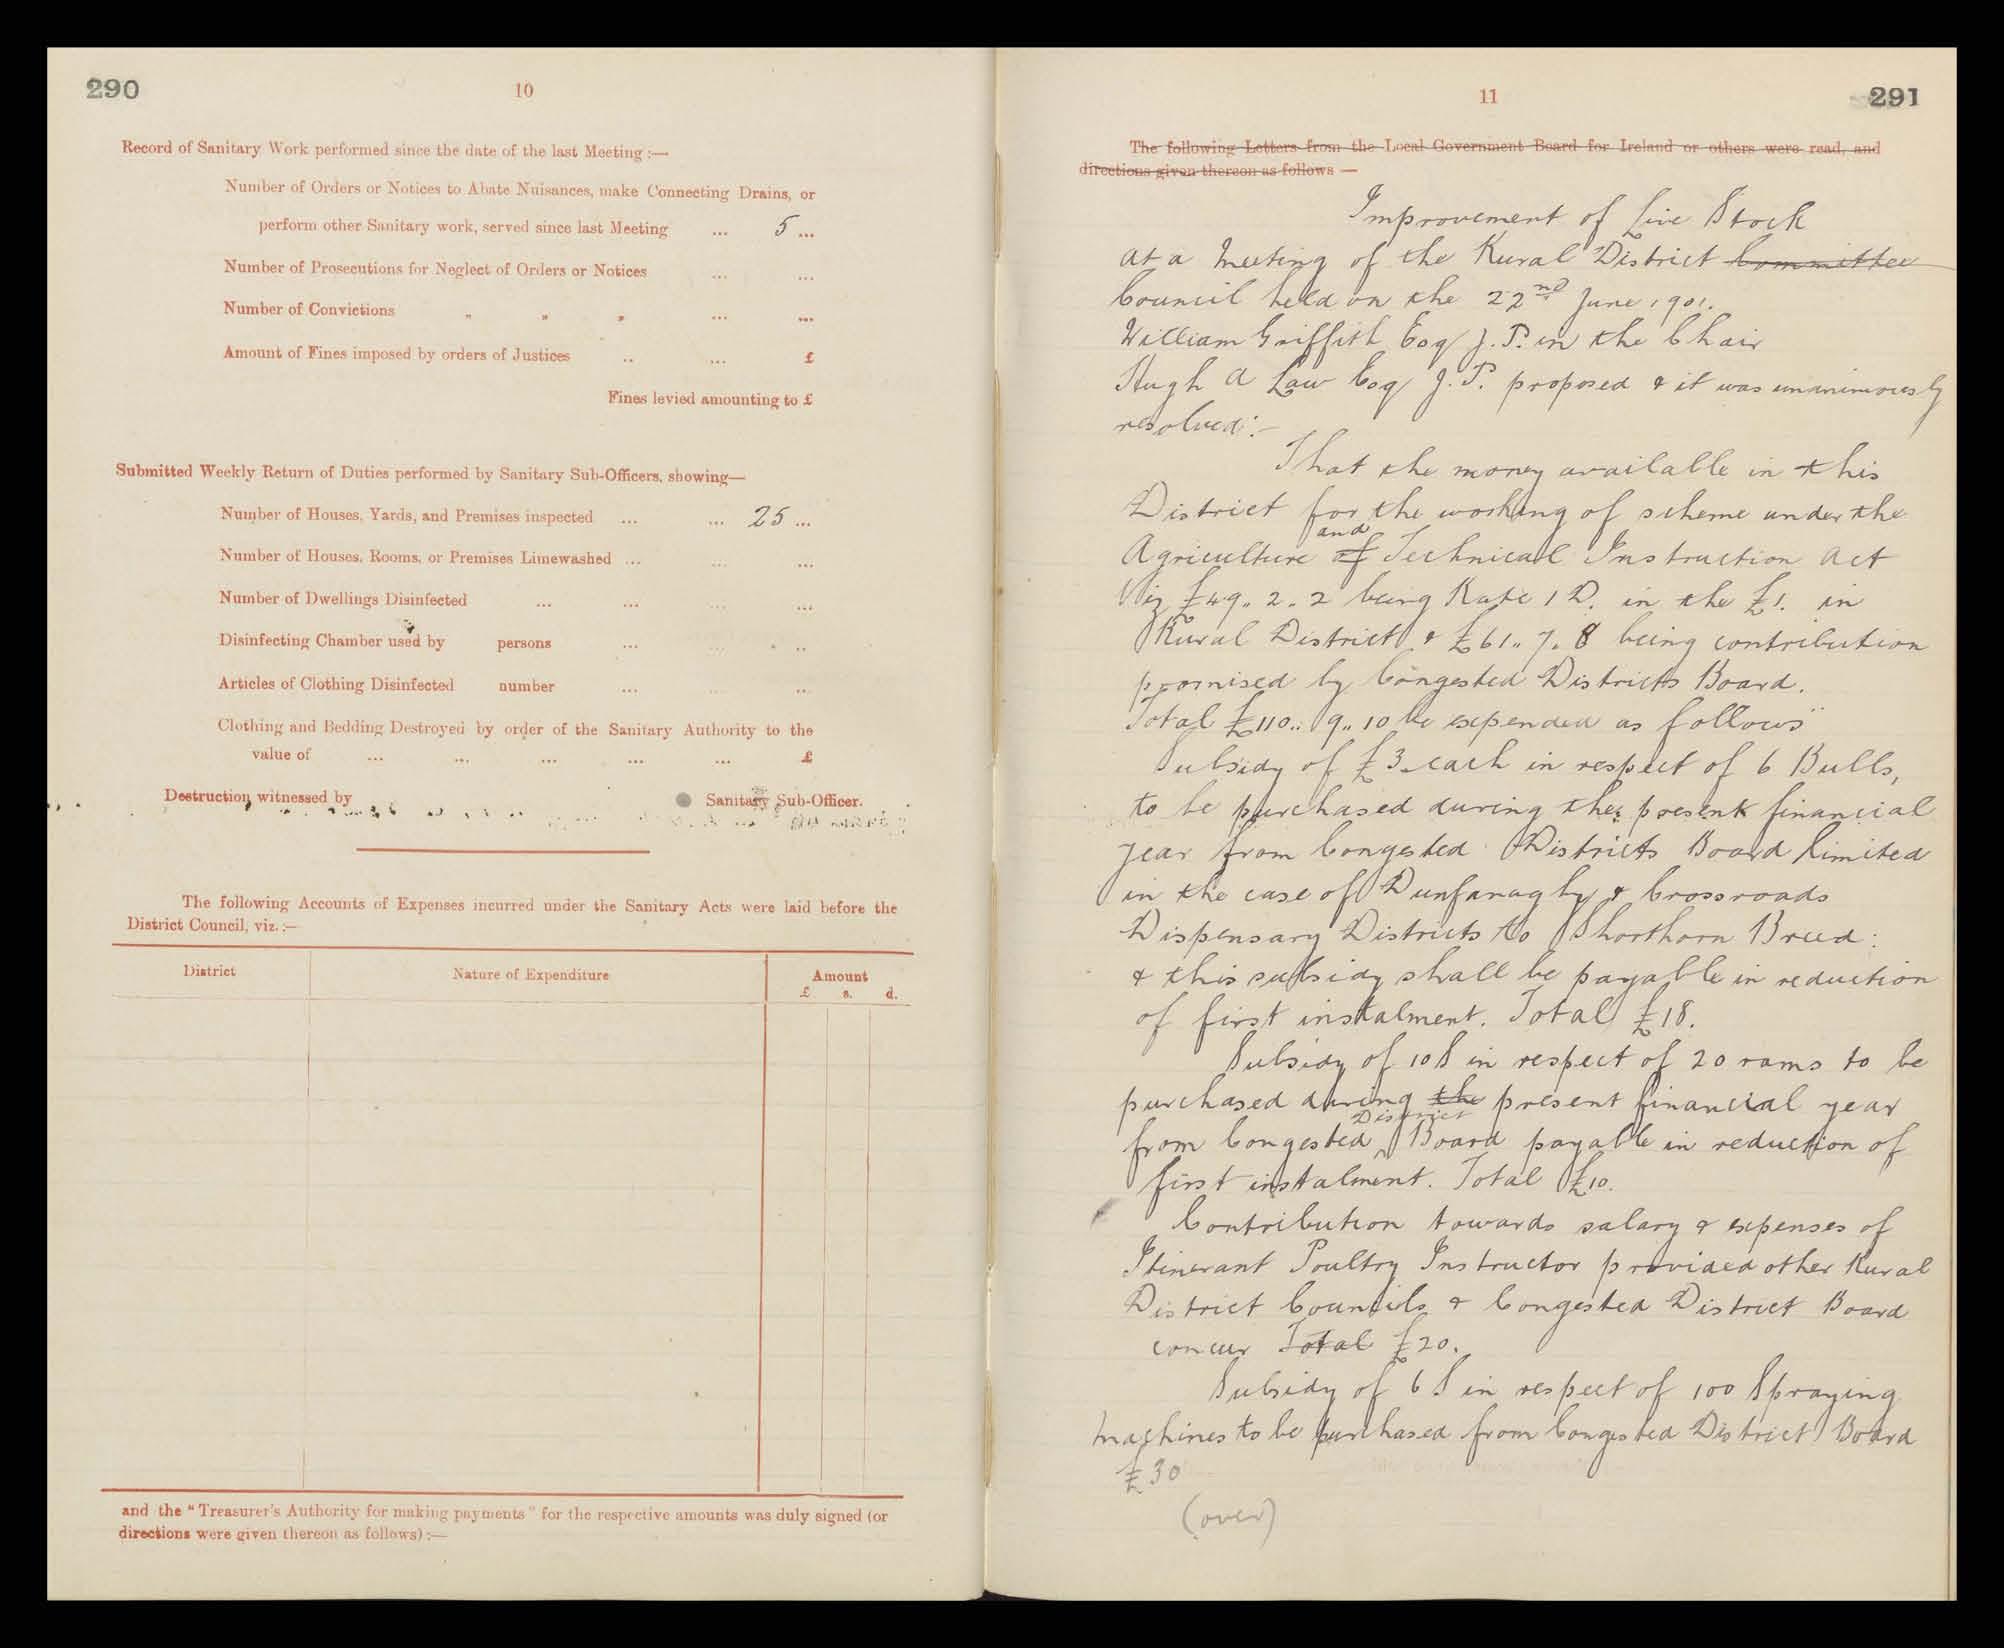 290
10
Record of Sanitary Work performed since the date of the last Meeting :—
Number of Orders or Notices to Abate Nuisances, make Connecting Drains, or
perform other Sanitary work, served since last Meeting ... 5 ...
Number of Prosecutions for Neglect of Orders or Notices ... ...
Number of Convictions „ „ „ ... ...
Amount of Fines imposed by orders of Justices .. ... £
Fines levied amounting to £
Submitted Weekly Return of Duties performed by Sanitary Sub-Officers, showing—
Number of Houses, Yards, and Premises inspected ... ... 25 ...
Number of Houses, Rooms, or Premises Limewashed ... ... ...
Number of Dwellings Disinfected ... ... ... ...
Disinfecting Chamber used by persons ... ... ..
Articles of Clothing Disinfected number ... ... ...
Clothing and Bedding Destroyed by order of the Sanitary Authority to the
value of ... ... ... ... ... £
Destruction witnessed by Sanitary Sub-Officer.
The following Accounts of Expenses incurred under the Sanitary Acts were laid before the
District Council, viz. :—
District Nature of Expenditure Amount
£ s. d.
and the "Treasurer's Authority for making payments" for the respective amounts was duly signed (or
directions were given thereon as follows) :—
11
291
The following Letters from the Local Government Board for Ireland or others were read, and
directions given thereon as follows —
Improvement of Live Stock
At a Meeting of the Rural District Committee
Council held on the 22nd June 1901.
William Griffith Esq J.P. in the Chair
Hugh A Law Esq J.P. proposed & it was unanimously
resolved:-
That the money available in this
District for the working of scheme under the
and
Agriculture of Technical Instruction Act
Viz £49.. 2.. 2 being Rate 1D. in the £1. in
Rural District & £61.. 7. 8 being contribution
promised by Congested Districts Board.
Total £110.. 9.. 10 be expended as follows
Subsidy of £3 each in respect of 6 Bulls,
to be purchased during the present financial
year from Congested Districts Board limited
in the case of Dunfanaghy & Crossroads
Dispensary Districts to Shorthorn Breed:
& this subsidy shall be payable in reduction
of first instalment. Total £18.
Subsidy of 10S in respect of 20 rams to be
purchased during the present financial year
District
from Congested Board payable in reduction of
first instalment. Total £10.
Contribution towards salary & expenses of
Itinerant Poultry Instructor provided other Rural
District Councils & Congested District Board
concur Total £20.
Subsidy of 6S in respect of 100 Spraying
Machines to be purchased from Congested District Board
£30
(over)